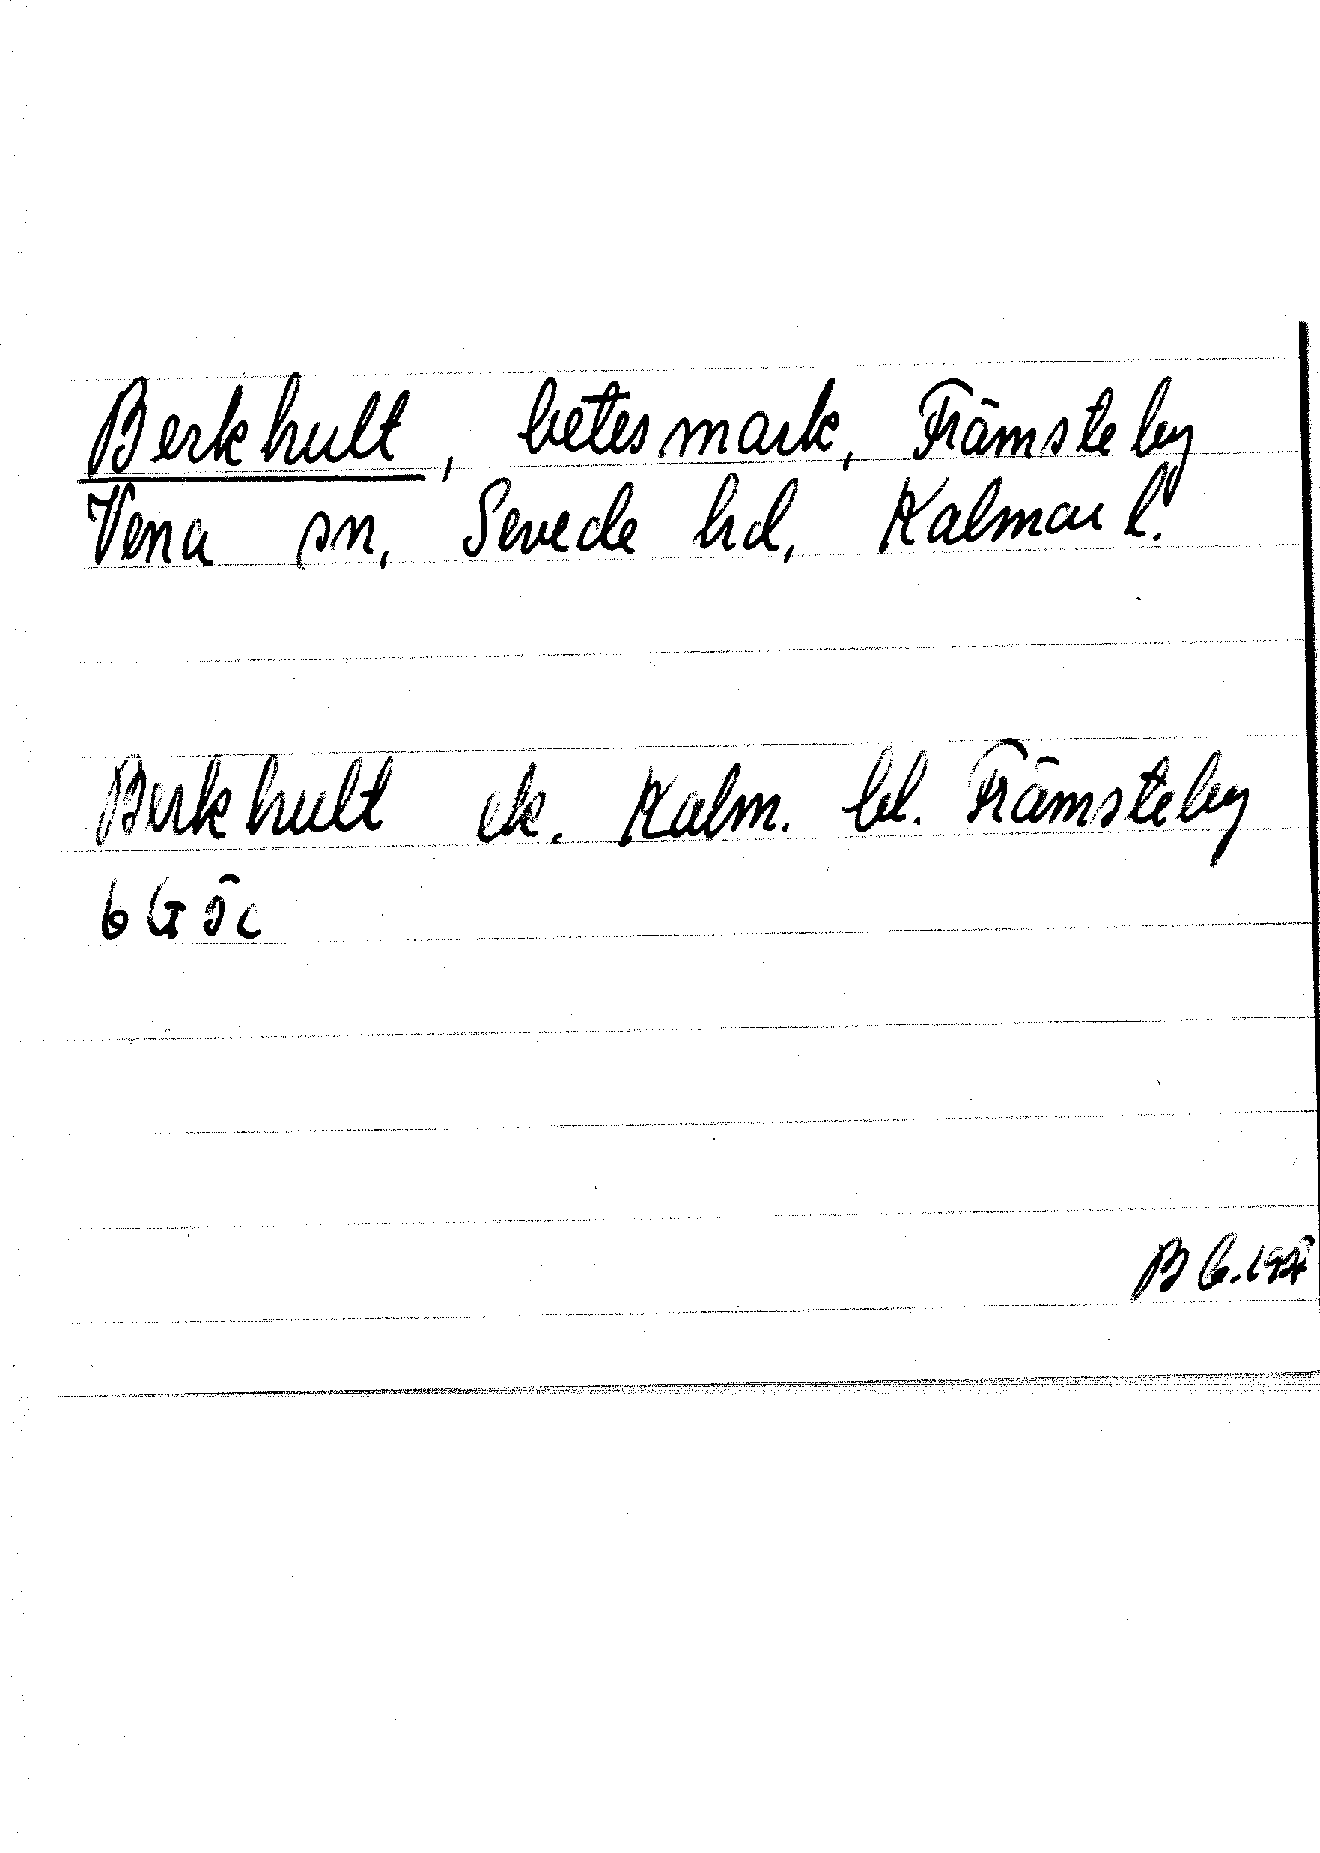 Berkhult, betesmark, Främsteby
Vena sn, Sevede hd, Kalmar l.
Berkhult ek. Kalm. bl. Främsteby
6G5c